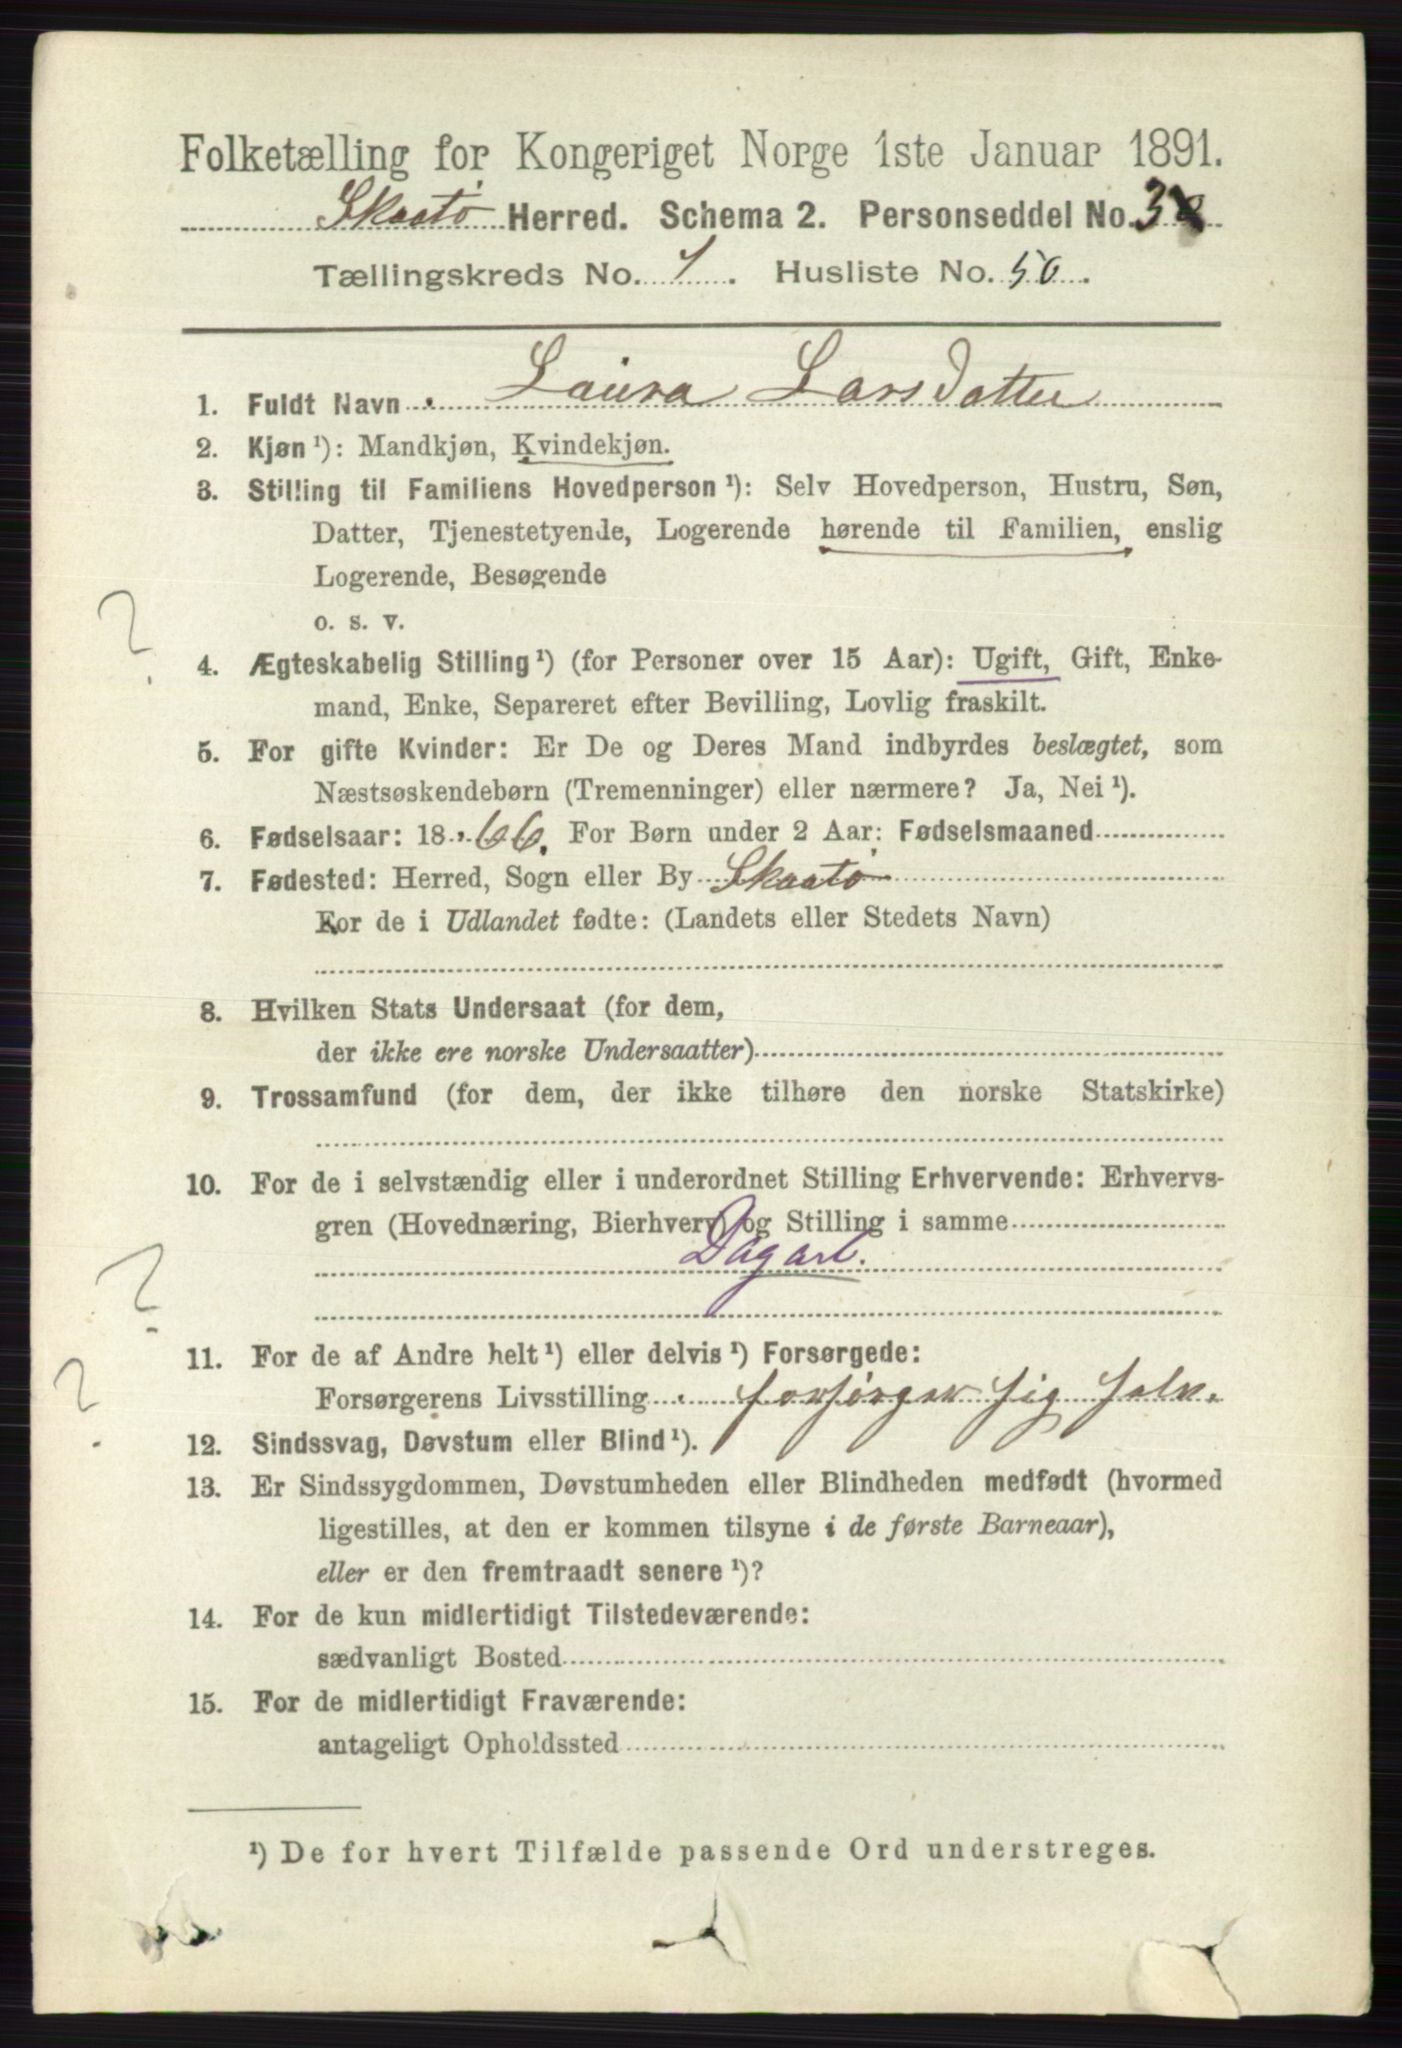 Folketælling for Kongeriget Norge 1ste Januar 1891.
Skaatø Herred. Schema 2. Personseddel No. 3
Tællingskreds No. 1. Husliste No. 50.
1. Fuldt Navn Laura Larsdatter
2. Kjøn ¹): Mandkjøn, Kvindekjøn.
3. Stilling til Familiens Hovedperson ¹): Selv Hovedperson, Hustru, Søn,
Datter, Tjenestetyende, Logerende hørende til Familien, enslig
Logerende, Besøgende
o. s. v.
?
4. Ægteskabelig Stilling ¹) (for Personer over 15 Aar): Ugift, Gift, Enke-
mand, Enke, Separeret efter Bevilling, Lovlig fraskilt.
5. For gifte Kvinder: Er De og Deres Mand indbyrdes beslægtet, som
Næstsøskendebørn (Tremenninger) eller nærmere? Ja, Nei ¹).
6. Fødselsaar: 1866. For Børn under 2 Aar: Fødselsmaaned
7. Fødested: Herred, Sogn eller By Skaatø
For de i Udlandet fødte: (Landets eller Stedets Navn)
8. Hvilken Stats Undersaat (for dem,
der ikke ere norske Undersaatter)
9. Trossamfund (for dem, der ikke tilhøre den norske Statskirke)
10. For de i selvstændig eller i underordnet Stilling Erhvervende: Erhvervs-
gren (Hovednæring, Bierhverv) og Stilling i samme
Dagarb.
?
11. For de af Andre helt ¹) eller delvis ¹) Forsørgede:
Forsørgerens Livsstilling forsörger sig selv.
?
12. Sindssvag, Døvstum eller Blind ¹).
13. Er Sindssygdommen, Døvstumheden eller Blindheden medfødt (hvormed
ligestilles, at den er kommen tilsyne i de første Barneaar),
eller er den fremtraadt senere ¹)?
14. For de kun midlertidigt Tilstedeværende:
sædvanligt Bosted
15. For de midlertidigt Fraværende:
antageligt Opholdssted
¹) De for hvert Tilfælde passende Ord understreges.